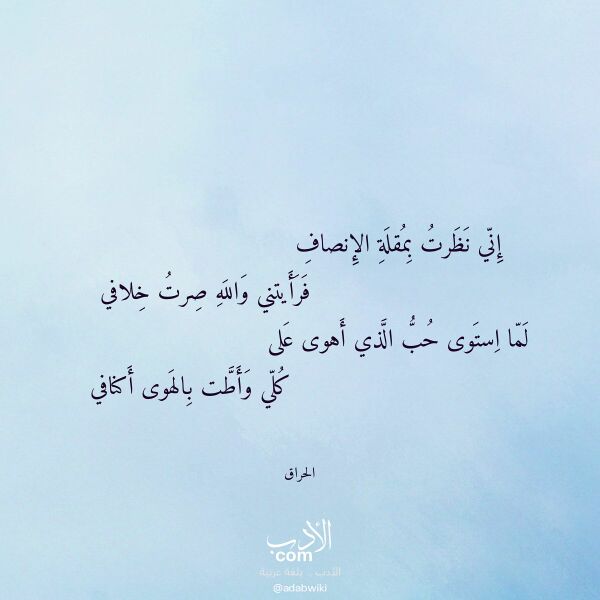 إِنّي نَظَرتُ بِمُقلَةِ الإِنصافِ
فَرَأَيتني وَاللَهِ صِرتُ خِلافي
لَمّا اِستَوى حُبُّ الَّذي أَهوى عَلى
كُلّي وَأَطَّت بِالهَوى أَكنافي
الحراق
الأدب
com
الأدب .. بلغة عربية
@adabwiki